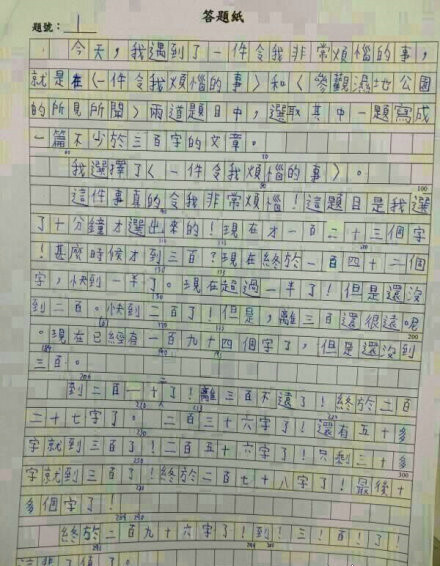 答題紙
題號：1
今天，我遇到了一件令我非常煩惱的事，
就是在〈一件令我煩惱的事〉和〈參觀濕地公園
的所見所聞〉兩道題目中，選取其中一題寫成
一篇不少於三百字的文章。
我選擇了〈一件令我煩惱的事〉。
100
這件事真的令我非常煩惱！這題目是我選
了十分鐘才選出來的！現在才一百二十三個字
！甚麼時候才到三百？現在終於一百四十二個
字，快到一半了。現在超過一半了！但是還沒
到二百。快到二百了！但是，離三百還很遠。
200
。現在已經有一百九十四個字了，但是還沒到
三百。
到二百一十了！離三百不遠了！終於二百
二十七字了。二百三十六字了！還有五十多
字就到三百了！二百五十六字了！只剩三十多
300
字就到三百了！終於二百七十八字了！最後十
多個字了！
終於二百九十六字了！到！三！百！了！